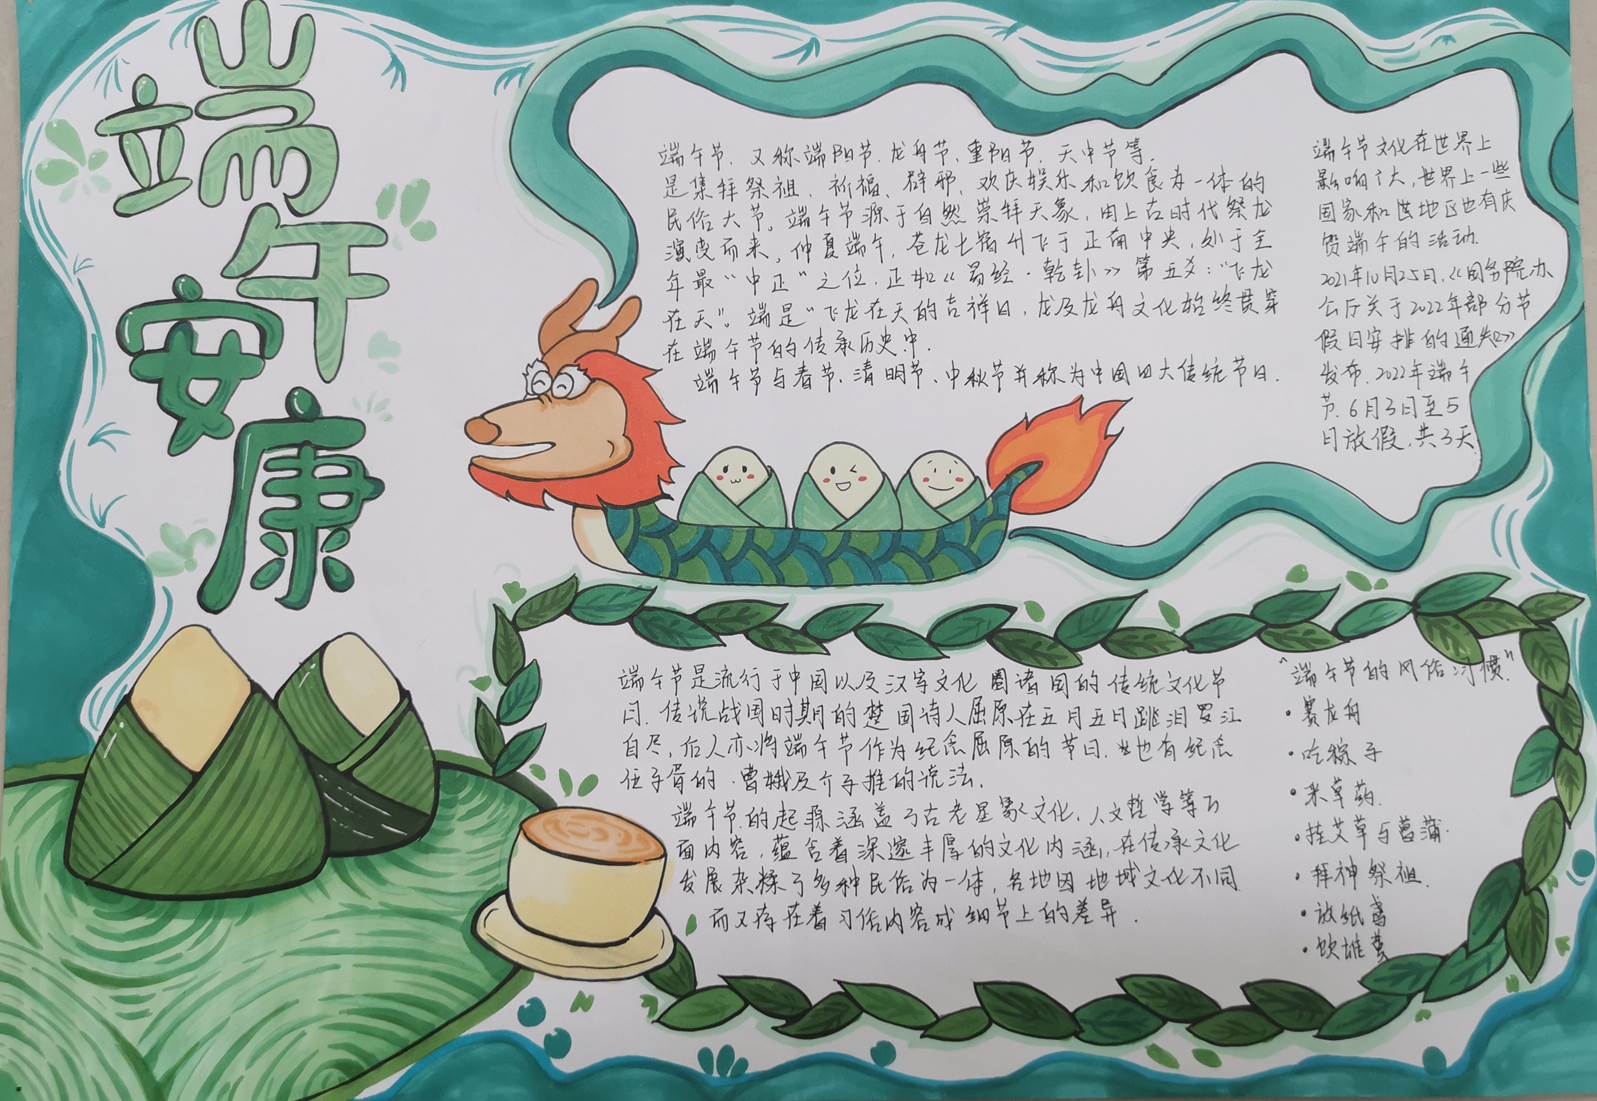 端午安康
端午节，又称端阳节、龙舟节、重阳节、天中节等，
是集拜祭祖、祈福、辟邪、欢庆娱乐和饮食为一体的
民俗大节。端午节源于自然崇拜天象，由上古时代祭龙
演变而来。仲夏端午，苍龙七宿升飞于正南中央，处于全
年最“中正”之位，正如《易经·乾卦》第五爻：“飞龙
在天”。端是“飞龙在天的吉祥日，龙及龙舟文化始终贯穿
在端午节的传承历史中。
端午节与春节、清明节、中秋节并称为中国四大传统节日。
端午节文化在世界上
影响广大，世界上一些
国家和地区也有庆
贺端午的活动.
2021年10月25日，《国务院办
公厅关于2022年部分节
假日安排的通知》
发布，2022年端午
节，6月3日至5
日放假，共3天
端午节是流行于中国以及汉字文化圈诸国的传统文化节
日，传说战国时期的楚国诗人屈原在五月五日跳汨罗江
自尽，后人亦将端午节作为纪念屈原的节日.也有纪念
伍子胥的、曹娥及介子推的说法.
端午节的起源涵盖了古老星象文化，人文哲学等方
面内容，蕴含着深邃丰厚的文化内涵，在传承文化
发展杂糅了多种民俗为一体，各地因地域文化不同
而又存在着习俗内容或细节上的差异.
“端午节的风俗习惯”
·赛龙舟
·吃粽子
·采草药.
·挂艾草与菖蒲.
·拜神祭祖.
·放纸鸢
·饮雄黄